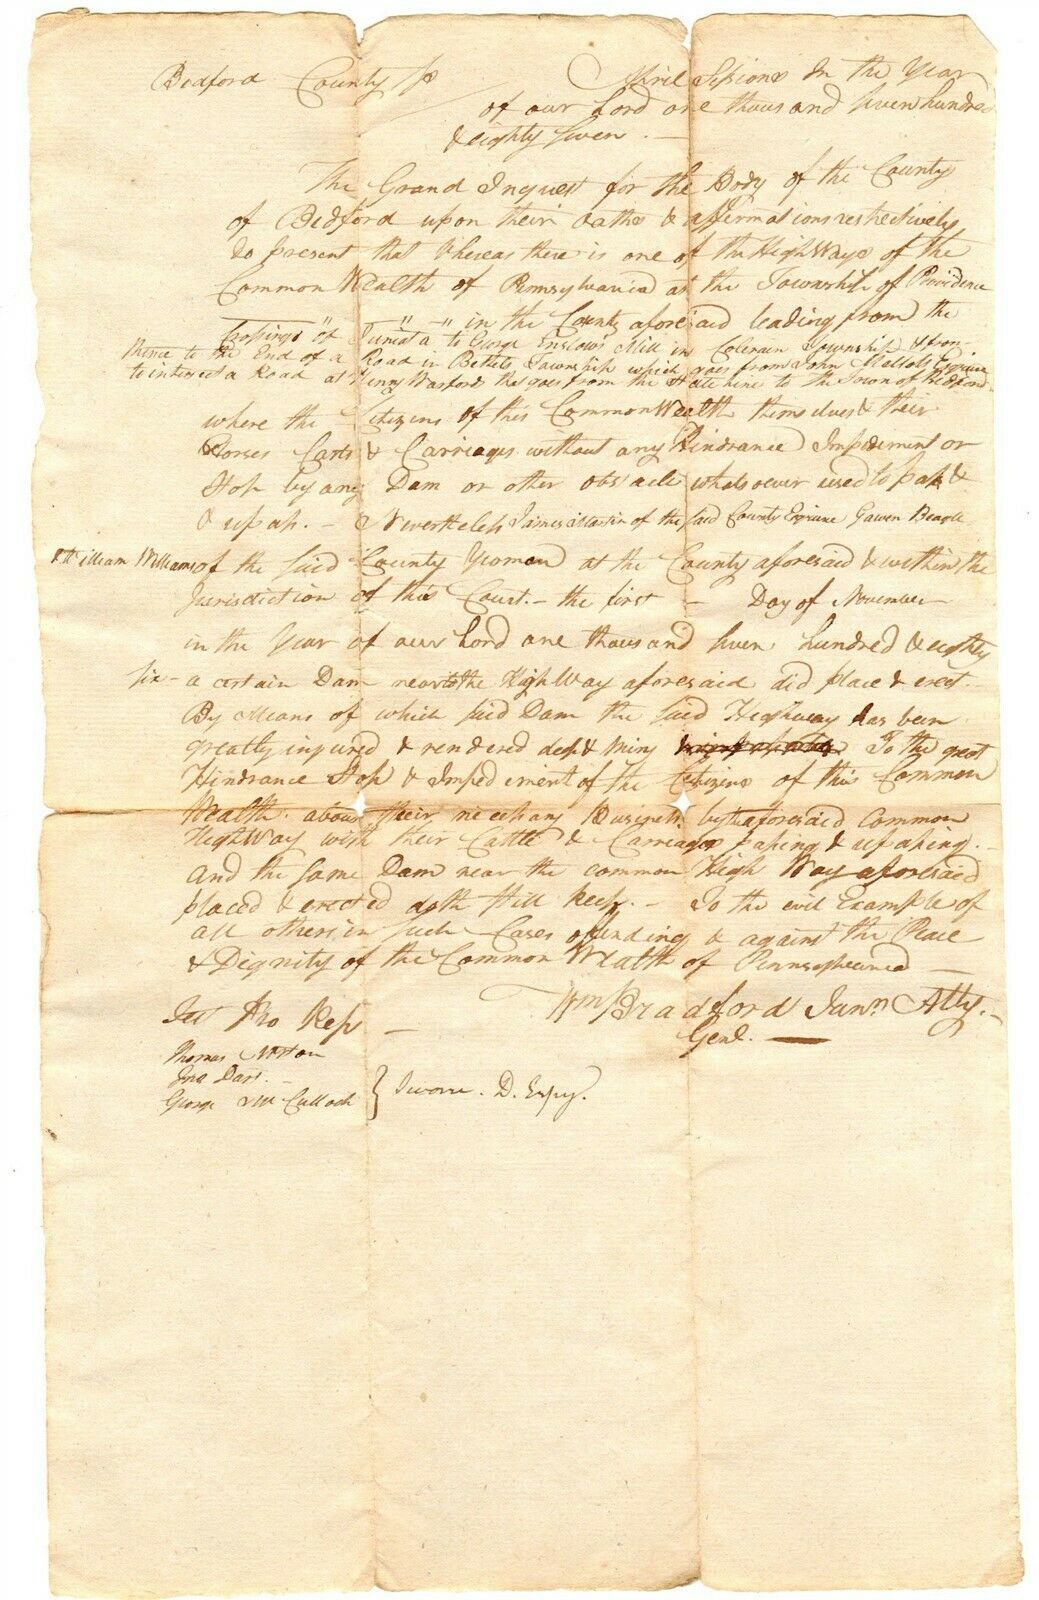 Bedford County ss April Sessions In the Year
of our Lord one thousand seven hundred
& eighty seven. —
The Grand Inquest for the Body of the County
of Bedford upon their oaths & affirmations respectively
do present that Whereas there is one of the HighWays of the
Common Wealth of Pennsylvania at the Township of Providence
in the County aforesaid leading from the
Crossings of Juniata to George Enslow's Mill in Colerain Township & from
thence to the End of a Road in Bethels Township which goes from John Mellots Esquire
to interest a Road at Henry Warfords that goes from the State line to the Town of Bedford
where the Citizens of this CommonWealth themselves & their
Horses Carts & Carriages without any Hindrance Impediment or
Stop by any Dam or other obstacle whatsoever used to pass &
& repass. — Nevertheless James Martin of the said County Esquire Gawen Beagle
& William Williams of the said County Yeoman at the County aforesaid & within the
Jurisdiction of this Court. — the first — Day of November —
in the Year of our Lord one thousand seven hundred & eighty
six — a certain Dam near to the HighWay aforesaid did place & erect.
By Means of which said Dam the said Highway has been
greatly injured & rendered deep & miry To the great
Hindrance Stop & Impediment of the Citizens of this Common
Wealth. about their necessary Business by the aforesaid Common
HighWay with their Cattle & Carriages passing & repassing. —
And the same Dam near the common High Way aforesaid
placed & erected doth still keep. — To the evil Example of
all others in such Cases offending & against the Peace
& Dignity of the Common Wealth of Pennsylvania —
Wm Bradford Junr. Atty. —
Genl. —
Test Pro Resp —
Thomas Norton
Jno Dart. —
George McCulloch } Sworn. D. Espy.